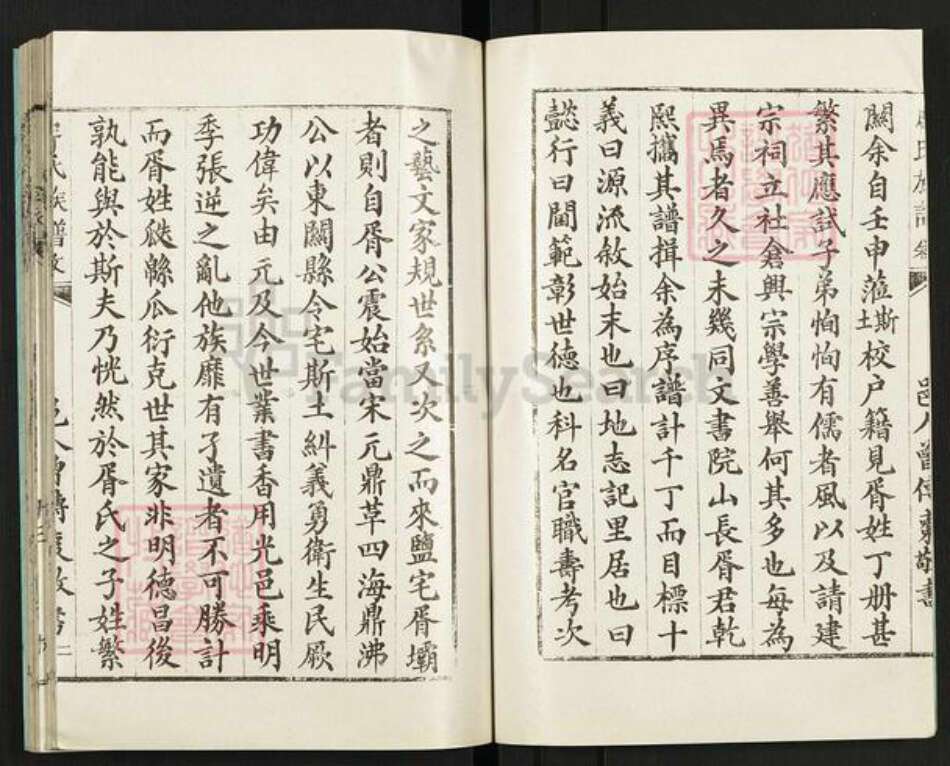 闕余自壬申蒞斯土校戶籍見胥姓丁册甚
繁其應試子弟恂恂有儒者風以及請建
宗祠立社倉興宗學善舉何其多也每為
異焉者久之未幾同文書院山長胥君乾
熙攜其譜揖余為序譜計千丁而目標十
義曰源流敘始末也曰地志記里居也曰
懿行曰閫範彰世德也科名官職壽考次
之藝文家規世系又次之而來鹽宅胥壩
者則自胥公震始當宋元鼎革四海鼎沸
公以東關縣令宅斯土糾義勇衛生民厥
功偉矣由元及今世業書香用光邑乘明
季張逆之亂他族靡有孑遺者不可勝計
而胥姓瓞緜瓜衍克世其家非明德昌後
孰能與於斯夫乃恍然於胥氏之子姓繁
FamilySearch